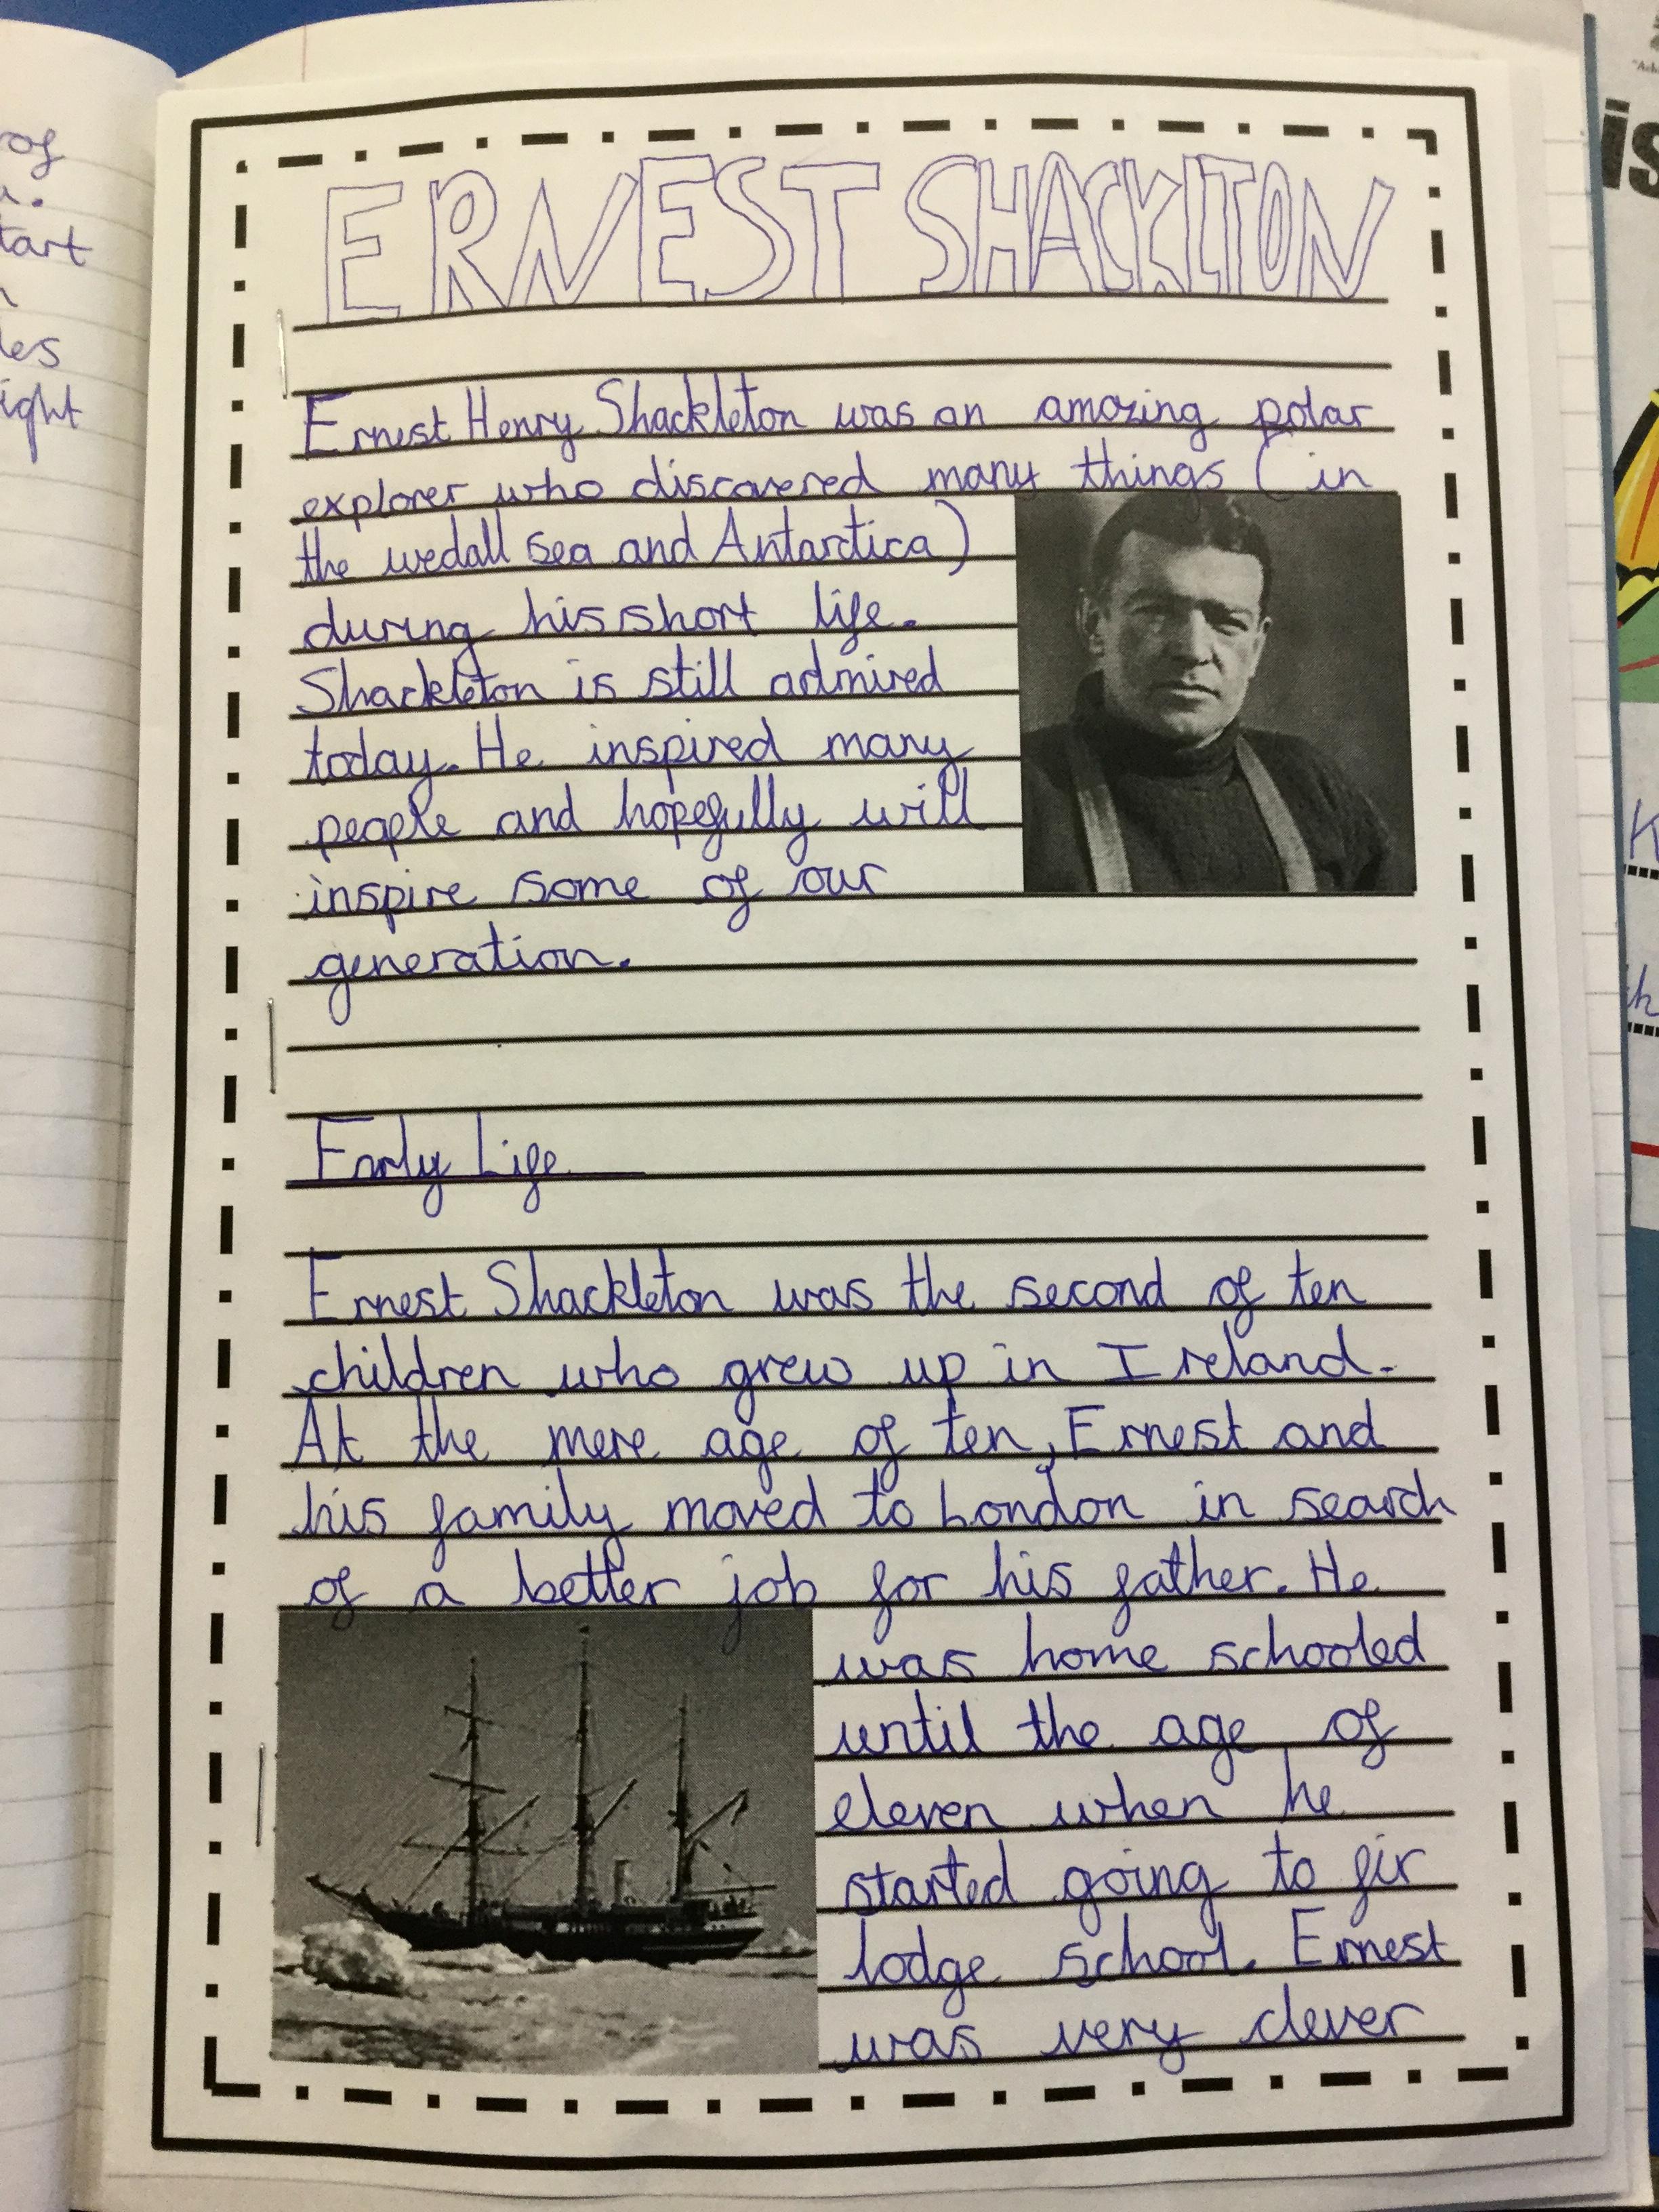 of
tart
ight
ERNEST SHACKLTON
Ernest Henry Shackleton was an amazing polar
explorer who discovered many things (in
the wedall sea and Antarctica)
during his short life.
Shackleton is still admired
today. He inspired many
people and hopefully will
inspire some of our
generation.
Early Life
Ernest Shackleton was the second of ten
children who grew up in Ireland.
At the mere age of ten, Ernest and
his family moved to London in search
of a better job for his father. He
was home schooled
until the age of
eleven when he
started going to fir
lodge school. Ernest
was very clever
is